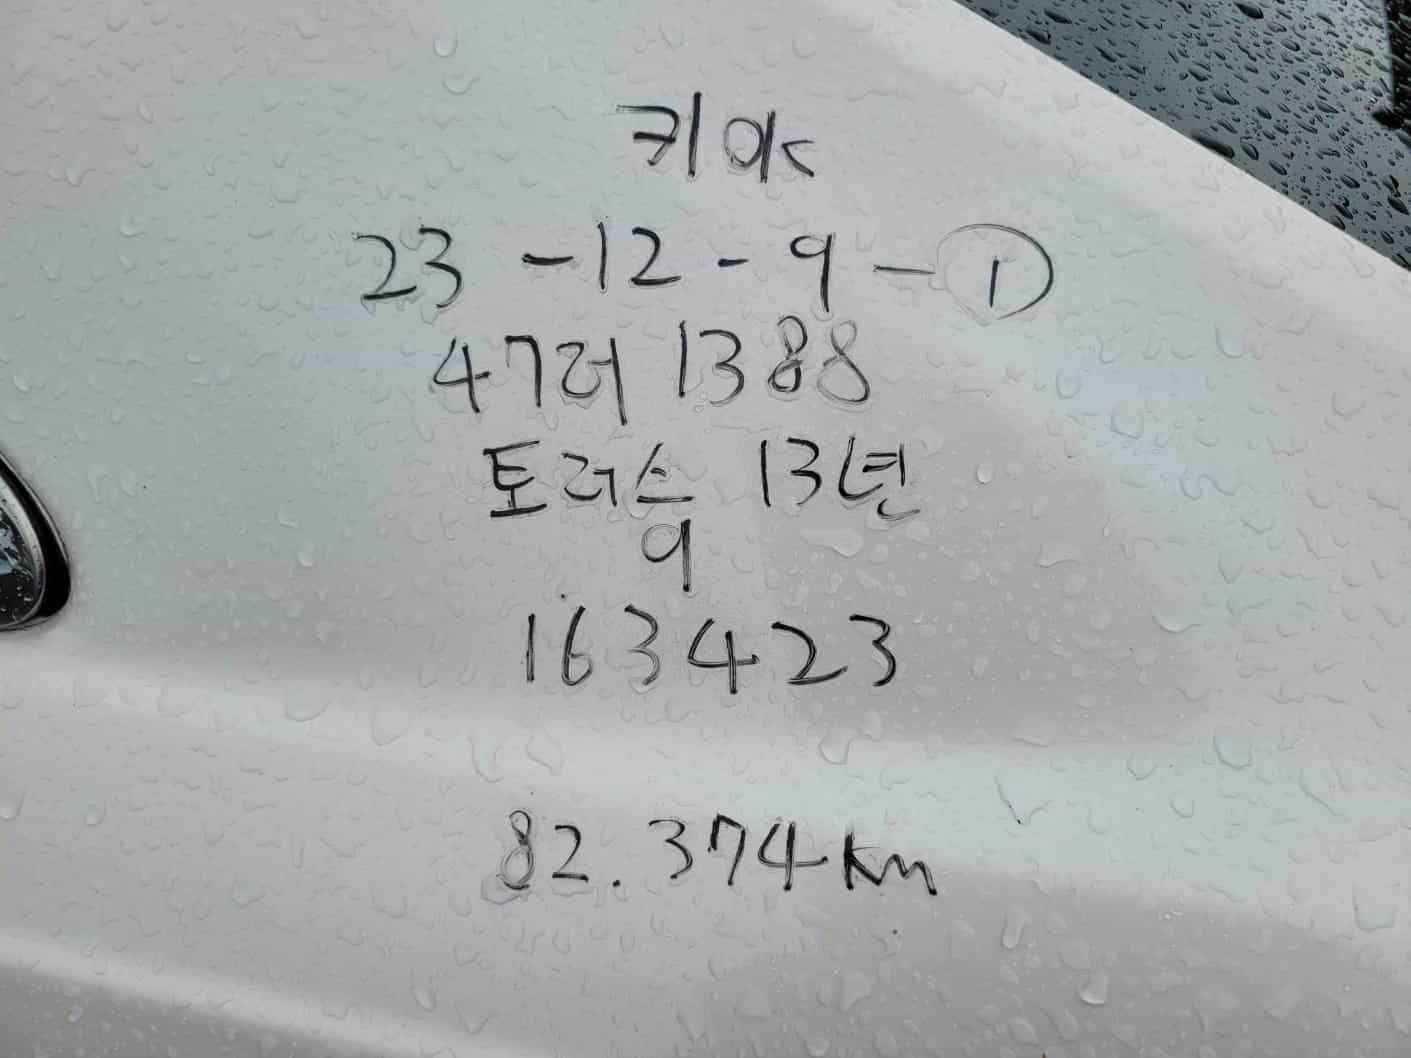 키 o k
23 - 12 - 9 - ①
47러 1388
토러스 13년
9
163423
82.374km